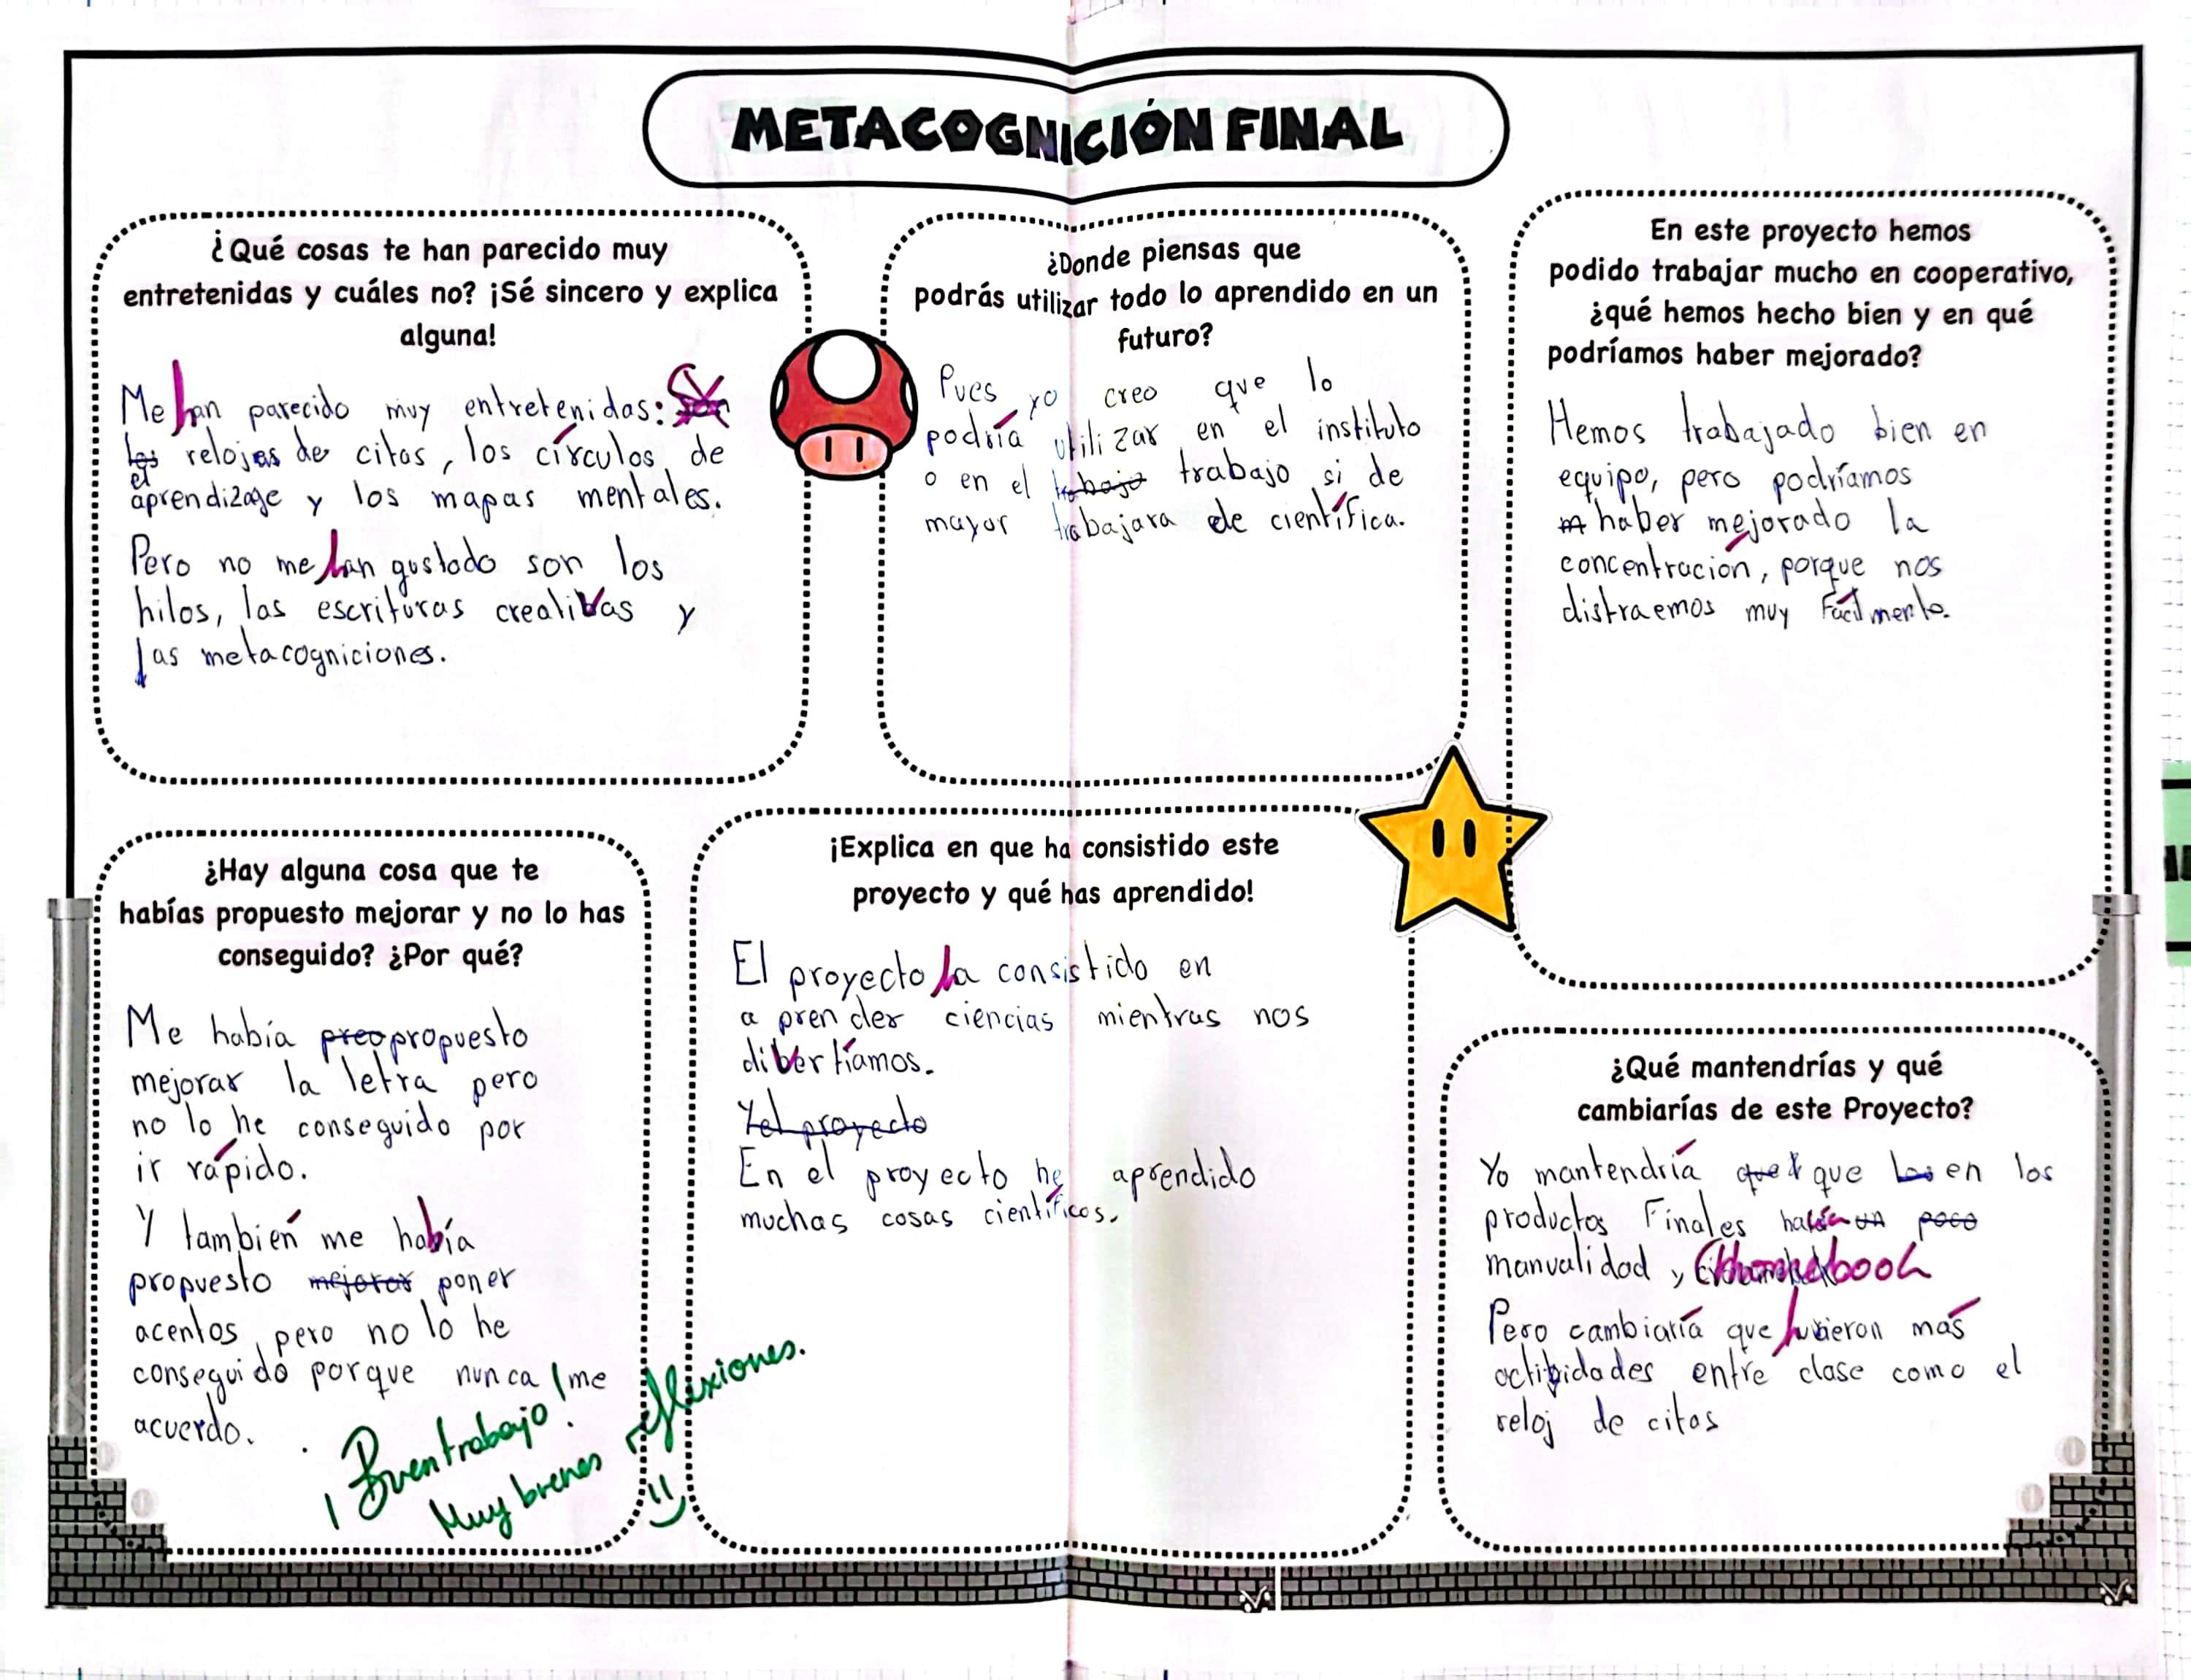 METACOGNICIÓN FINAL
¿Qué cosas te han parecido muy
entretenidas y cuáles no? ¡Sé sincero y explica
alguna!
Me han parecido muy entretenidas: Son
los relojes de citas, los círculos de
el
aprendizaje y los mapas mentales.
Pero no me han gustado son los
hilos, las escrituras creativas y
las metacogniciones.
¿Donde piensas que
podrás utilizar todo lo aprendido en un
futuro?
Pues yo creo que lo
podría utilizar en el instituto
o en el trabajo si de
mayor trabajara de científica.
En este proyecto hemos
podido trabajar mucho en cooperativo,
¿qué hemos hecho bien y en qué
podríamos haber mejorado?
Hemos trabajado bien en
equipo, pero podríamos
haber mejorado la
concentración, porque nos
distraemos muy fácilmente.
¿Hay alguna cosa que te
habías propuesto mejorar y no lo has
conseguido? ¿Por qué?
Me había preo propuesto
mejorar la letra pero
no lo he conseguido por
ir rápido.
Y también me había
propuesto mejorar poner
acentos, pero no lo he
conseguido porque nunca me
acuerdo.
¡Buen trabajo!
Muy buenas reflexiones.
¡Explica en que ha consistido este
proyecto y qué has aprendido!
El proyecto ha consistido en
aprender ciencias mientras nos
divertíamos.
Y el proyecto
En el proyecto he aprendido
muchas cosas científicos.
¿Qué mantendrías y qué
cambiarías de este Proyecto?
Yo mantendría que que los en los
productos Finales un poco
manualidad y
Pero cambiaría que hubieran más
actividades entre clase como el
reloj de citas